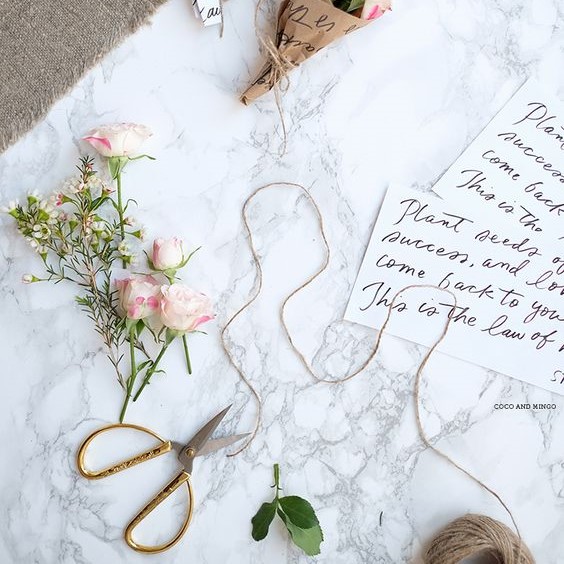 is th
Plan
success
come back
This is the
Plant seeds of
success, and lov
come back to you
This is the law of
COCO AND MINGO